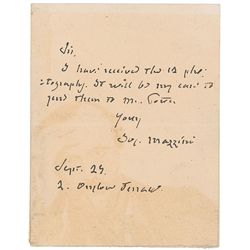 Sir,
I have received the 12 pho-
tographs. It will be my care to
send them to Mr.
Yours
Jos. Mazzini
Sept. 24.
2. Onslow Terrace